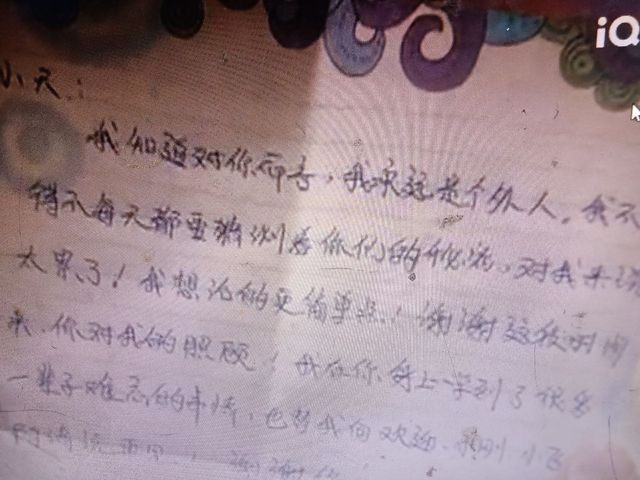 iQ
小天:
我知道对你而言,我永远是个外人。我不
得不每天都要猜测着你们的秘密。对我来说
太累了!我想活的更简单些!谢谢这段时间
来,你对我的照顾!我在你身上学到了很多
一辈子难忘的事情,也替我向欢迎、